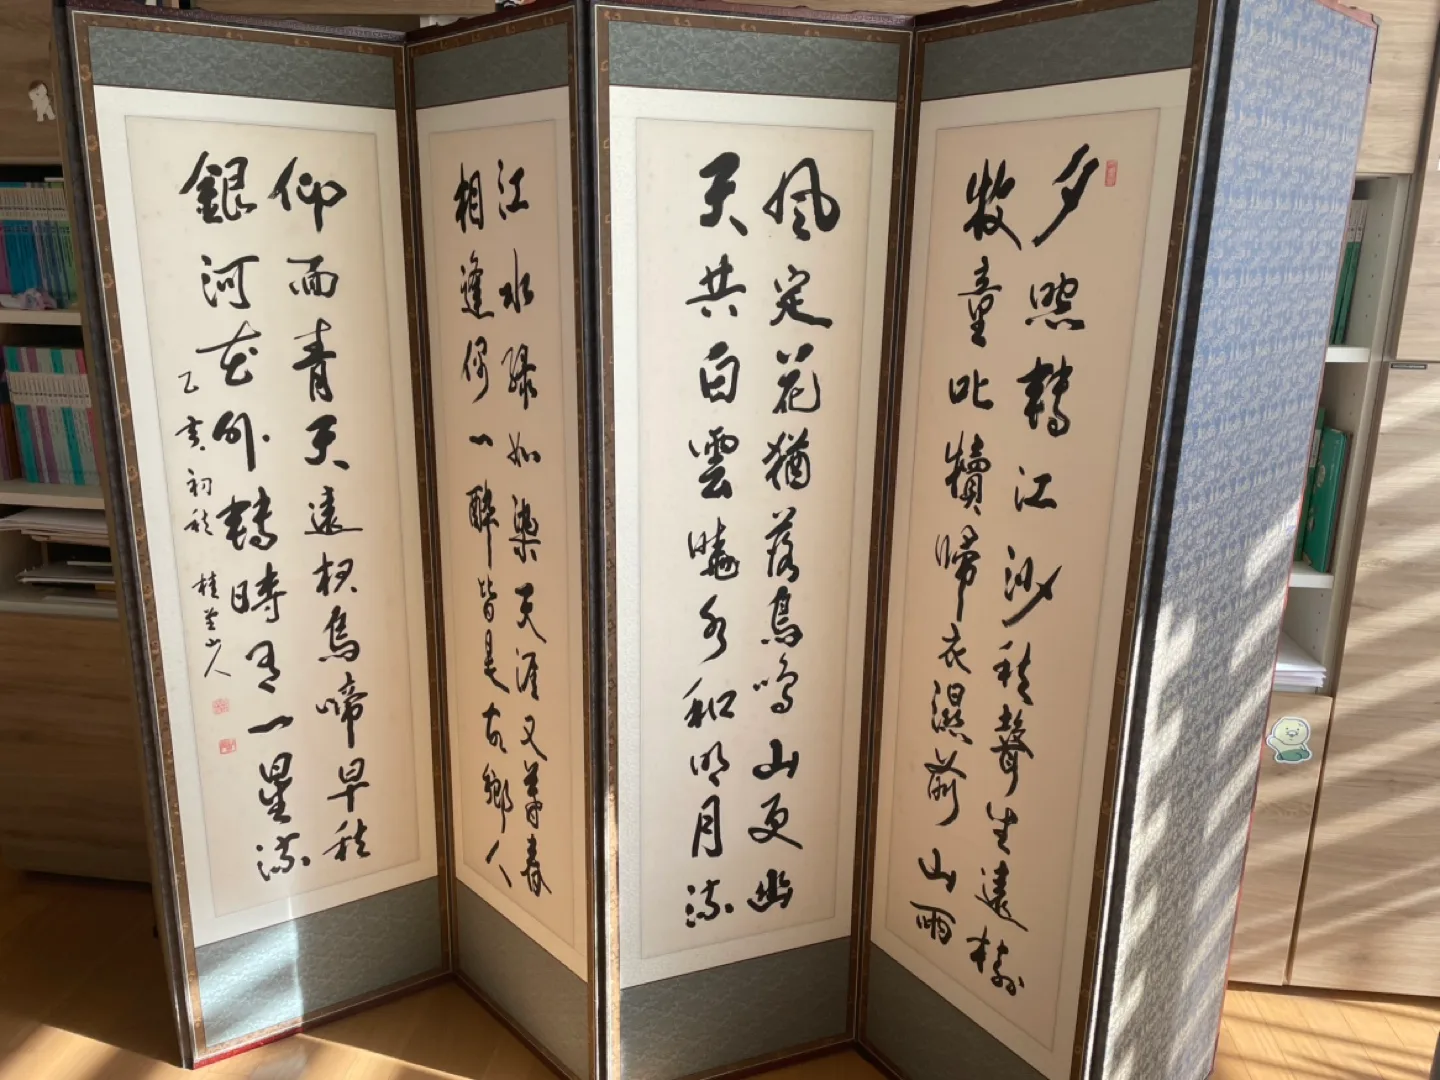 夕照轉江沙秋聲生遠樹
牧童叱犢歸衣濕前山雨
風定花猶落鳥鳴山更幽
天共白雲曉水和明月流
江水綠如染天涯又暮春
相逢偶一醉皆是故鄉人
仰面青天遠烏啼早秋
銀河花外轉時有一星流
乙亥初秋 桂山人